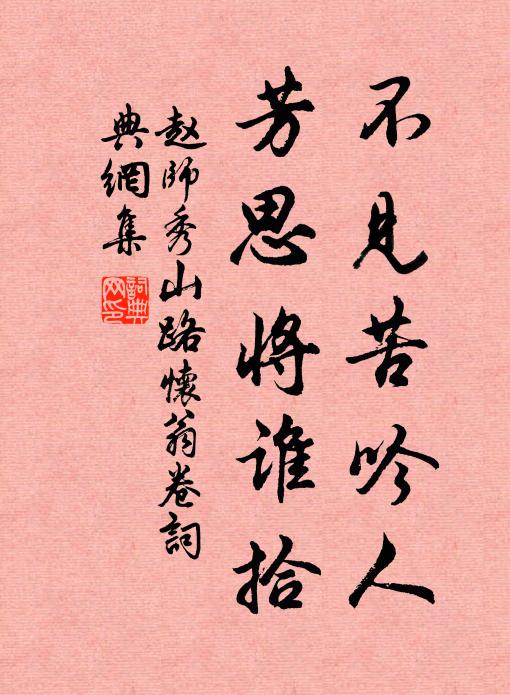 不見苦吟人
芳思將誰拾
趙師秀山路懷翁卷詞
典網集
詞典
网印